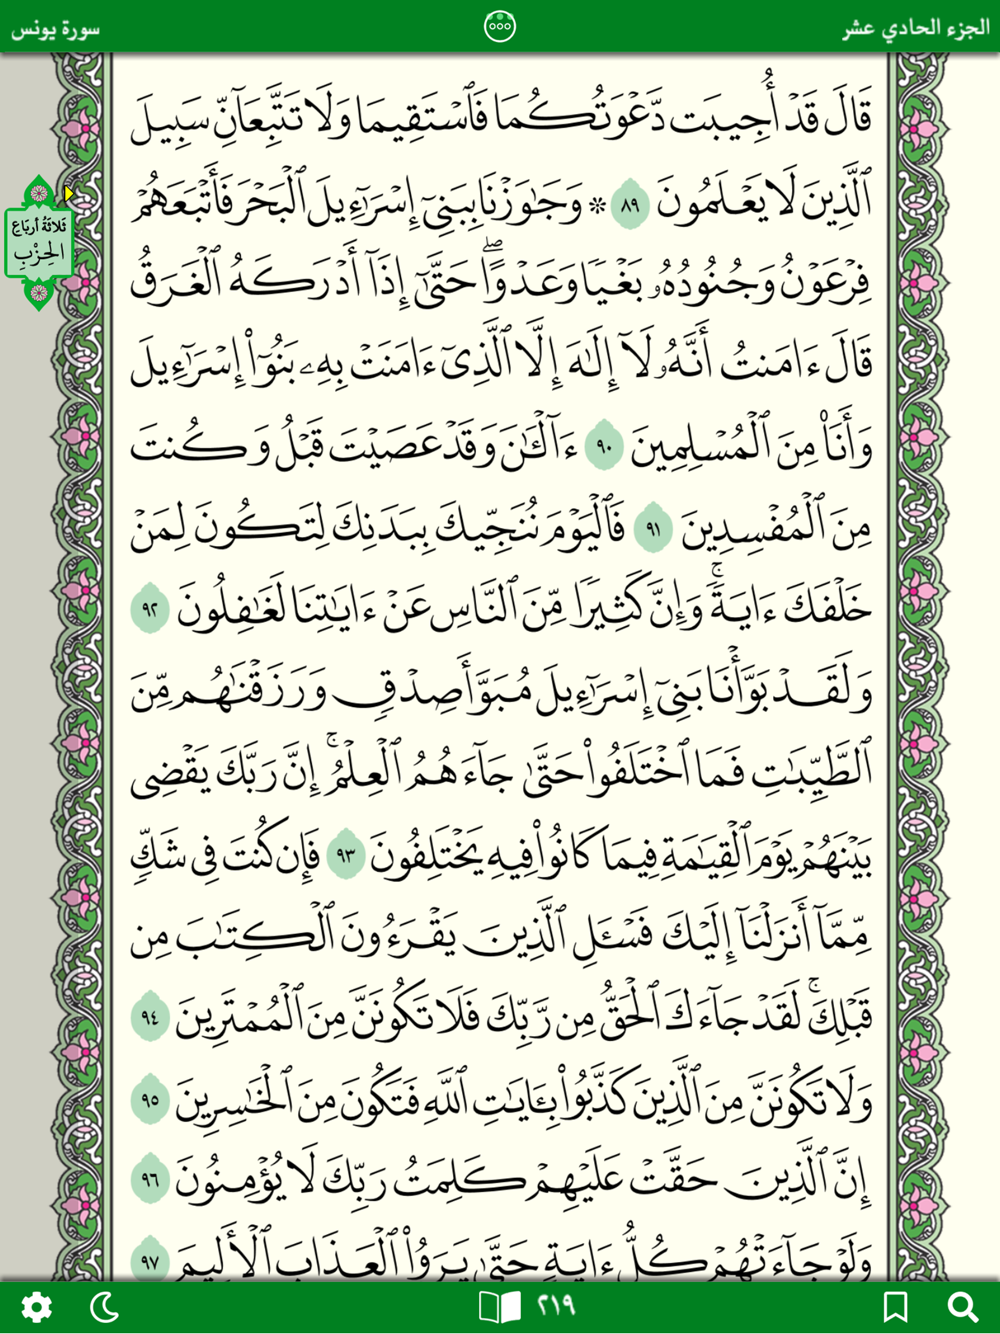 الجزء الحادي عشر
سورة يونس
قَالَ قَدْ أُجِيبَت دَّعْوَتُكُمَا فَٱسْتَقِيمَا وَلَا تَتَّبِعَآنِّ سَبِيلَ
ٱلَّذِينَ لَا يَعْلَمُونَ ٨٩ ۞ وَجَٰوَزْنَا بِبَنِىٓ إِسْرَٰٓءِيلَ ٱلْبَحْرَ فَأَتْبَعَهُمْ
ثَلَاثَةُ أَرْبَاع
الحِزْبِ
فِرْعَوْنُ وَجُنُودُهُۥ بَغْيًا وَعَدْوًا ۖ حَتَّىٰٓ إِذَآ أَدْرَكَهُ ٱلْغَرَقُ
قَالَ ءَامَنتُ أَنَّهُۥ لَآ إِلَٰهَ إِلَّا ٱلَّذِىٓ ءَامَنَتْ بِهِۦ بَنُوٓا۟ إِسْرَٰٓءِيلَ
وَأَنَا۠ مِنَ ٱلْمُسْلِمِينَ ٩٠ ءَآلْـَٰٔنَ وَقَدْ عَصَيْتَ قَبْلُ وَكُنتَ
مِنَ ٱلْمُفْسِدِينَ ٩١ فَٱلْيَوْمَ نُنَجِّيكَ بِبَدَنِكَ لِتَكُونَ لِمَنْ
خَلْفَكَ ءَايَةً ۚ وَإِنَّ كَثِيرًا مِّنَ ٱلنَّاسِ عَنْ ءَايَٰتِنَا لَغَٰفِلُونَ ٩٢
وَلَقَدْ بَوَّأْنَا بَنِىٓ إِسْرَٰٓءِيلَ مُبَوَّأَ صِدْقٍ وَرَزَقْنَٰهُم مِّنَ
ٱلطَّيِّبَٰتِ فَمَا ٱخْتَلَفُوا۟ حَتَّىٰ جَآءَهُمُ ٱلْعِلْمُ ۚ إِنَّ رَبَّكَ يَقْضِى
بَيْنَهُمْ يَوْمَ ٱلْقِيَٰمَةِ فِيمَا كَانُوا۟ فِيهِ يَخْتَلِفُونَ ٩٣ فَإِن كُنتَ فِى شَكٍّ
مِّمَّآ أَنزَلْنَآ إِلَيْكَ فَسْـَٔلِ ٱلَّذِينَ يَقْرَءُونَ ٱلْكِتَٰبَ مِن
قَبْلِكَ ۚ لَقَدْ جَآءَكَ ٱلْحَقُّ مِن رَّبِّكَ فَلَا تَكُونَنَّ مِنَ ٱلْمُمْتَرِينَ ٩٤
وَلَا تَكُونَنَّ مِنَ ٱلَّذِينَ كَذَّبُوا۟ بِـَٔايَٰتِ ٱللَّهِ فَتَكُونَ مِنَ ٱلْخَٰسِرِينَ ٩٥
إِنَّ ٱلَّذِينَ حَقَّتْ عَلَيْهِمْ كَلِمَتُ رَبِّكَ لَا يُؤْمِنُونَ ٩٦
وَلَوْ جَآءَتْهُمْ كُلُّ ءَايَةٍ حَتَّىٰ يَرَوُا۟ ٱلْعَذَابَ ٱلْأَلِيمَ ٩٧
٢١٩